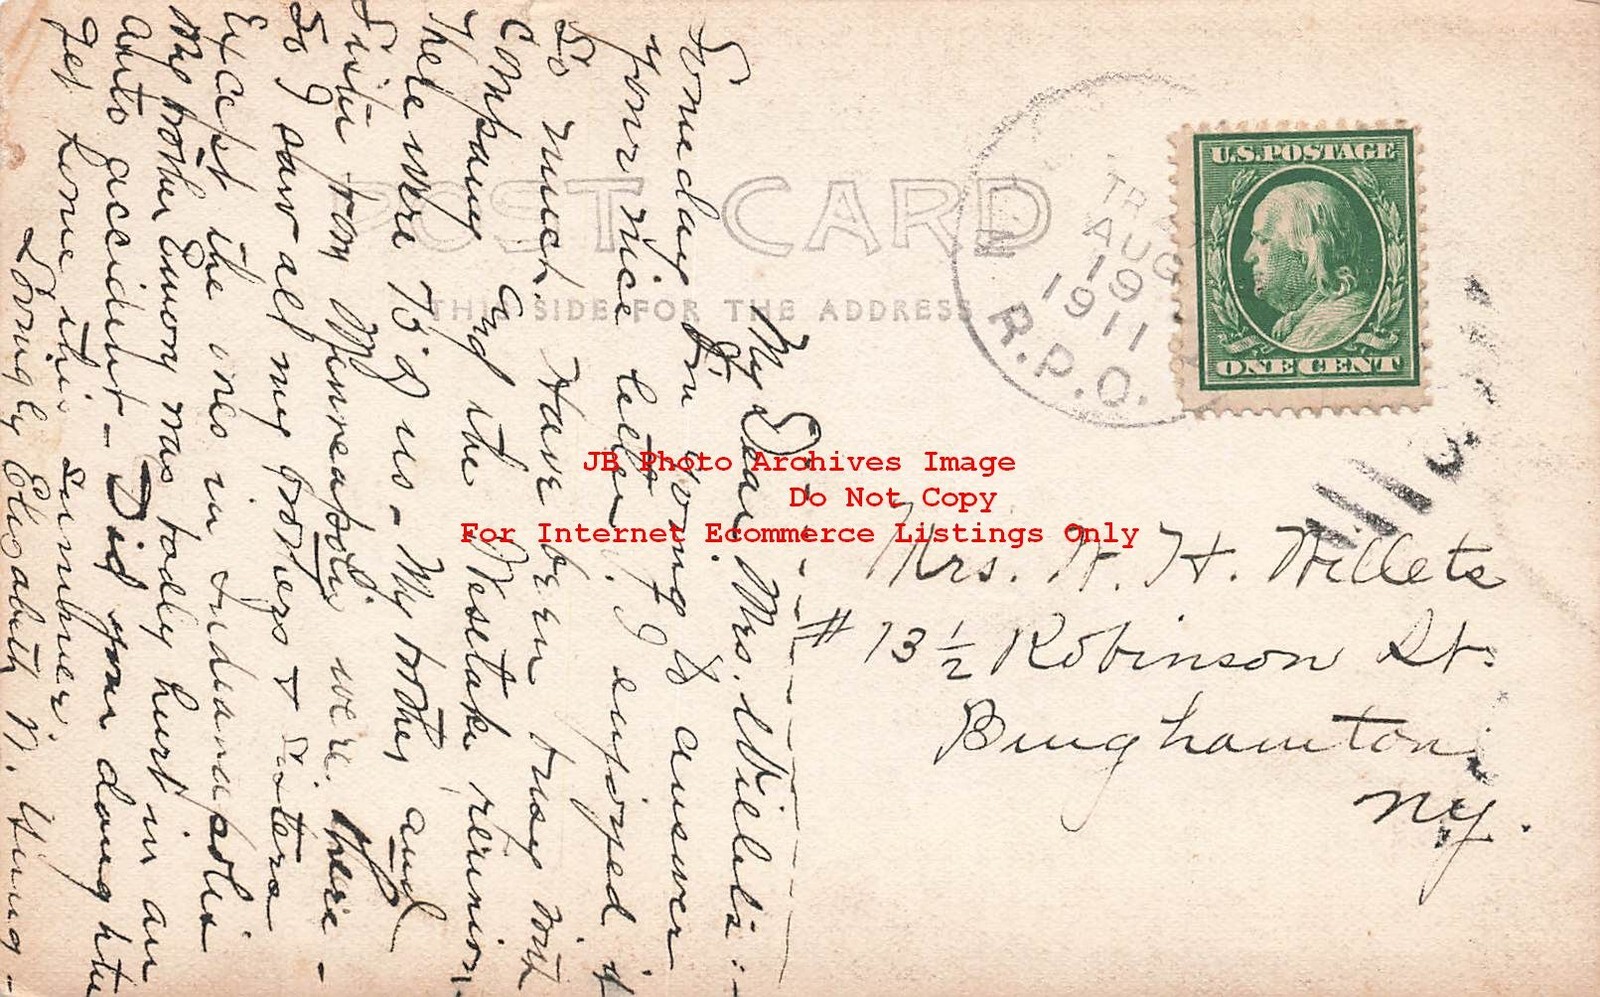 My Dear Mrs. Willets:-
Someday I'm going to answer
your nice letter. I enjoyed it
so much. Have been busy with
company and the Westlake reunion.
There were 75 of us - My brother and
sister from Minneapolis were here -
So I saw all my brothers & sisters
Except the ones in Indianapolis
My brother Emory was badly hurt in an
auto accident - Did your daughter
get home this summer.
Lovingly Elizabeth N. Young -
POST CARD
THIS SIDE FOR THE ADDRESS
TR
AUG
19
1911
R.P.O.
U.S. POSTAGE
ONE CENT
JB Photo Archives Image
Do Not Copy
For Internet Ecommerce Listings Only
Mrs. H. H. Willets
# 73 1/2 Robinson St.
Binghamton
NY.